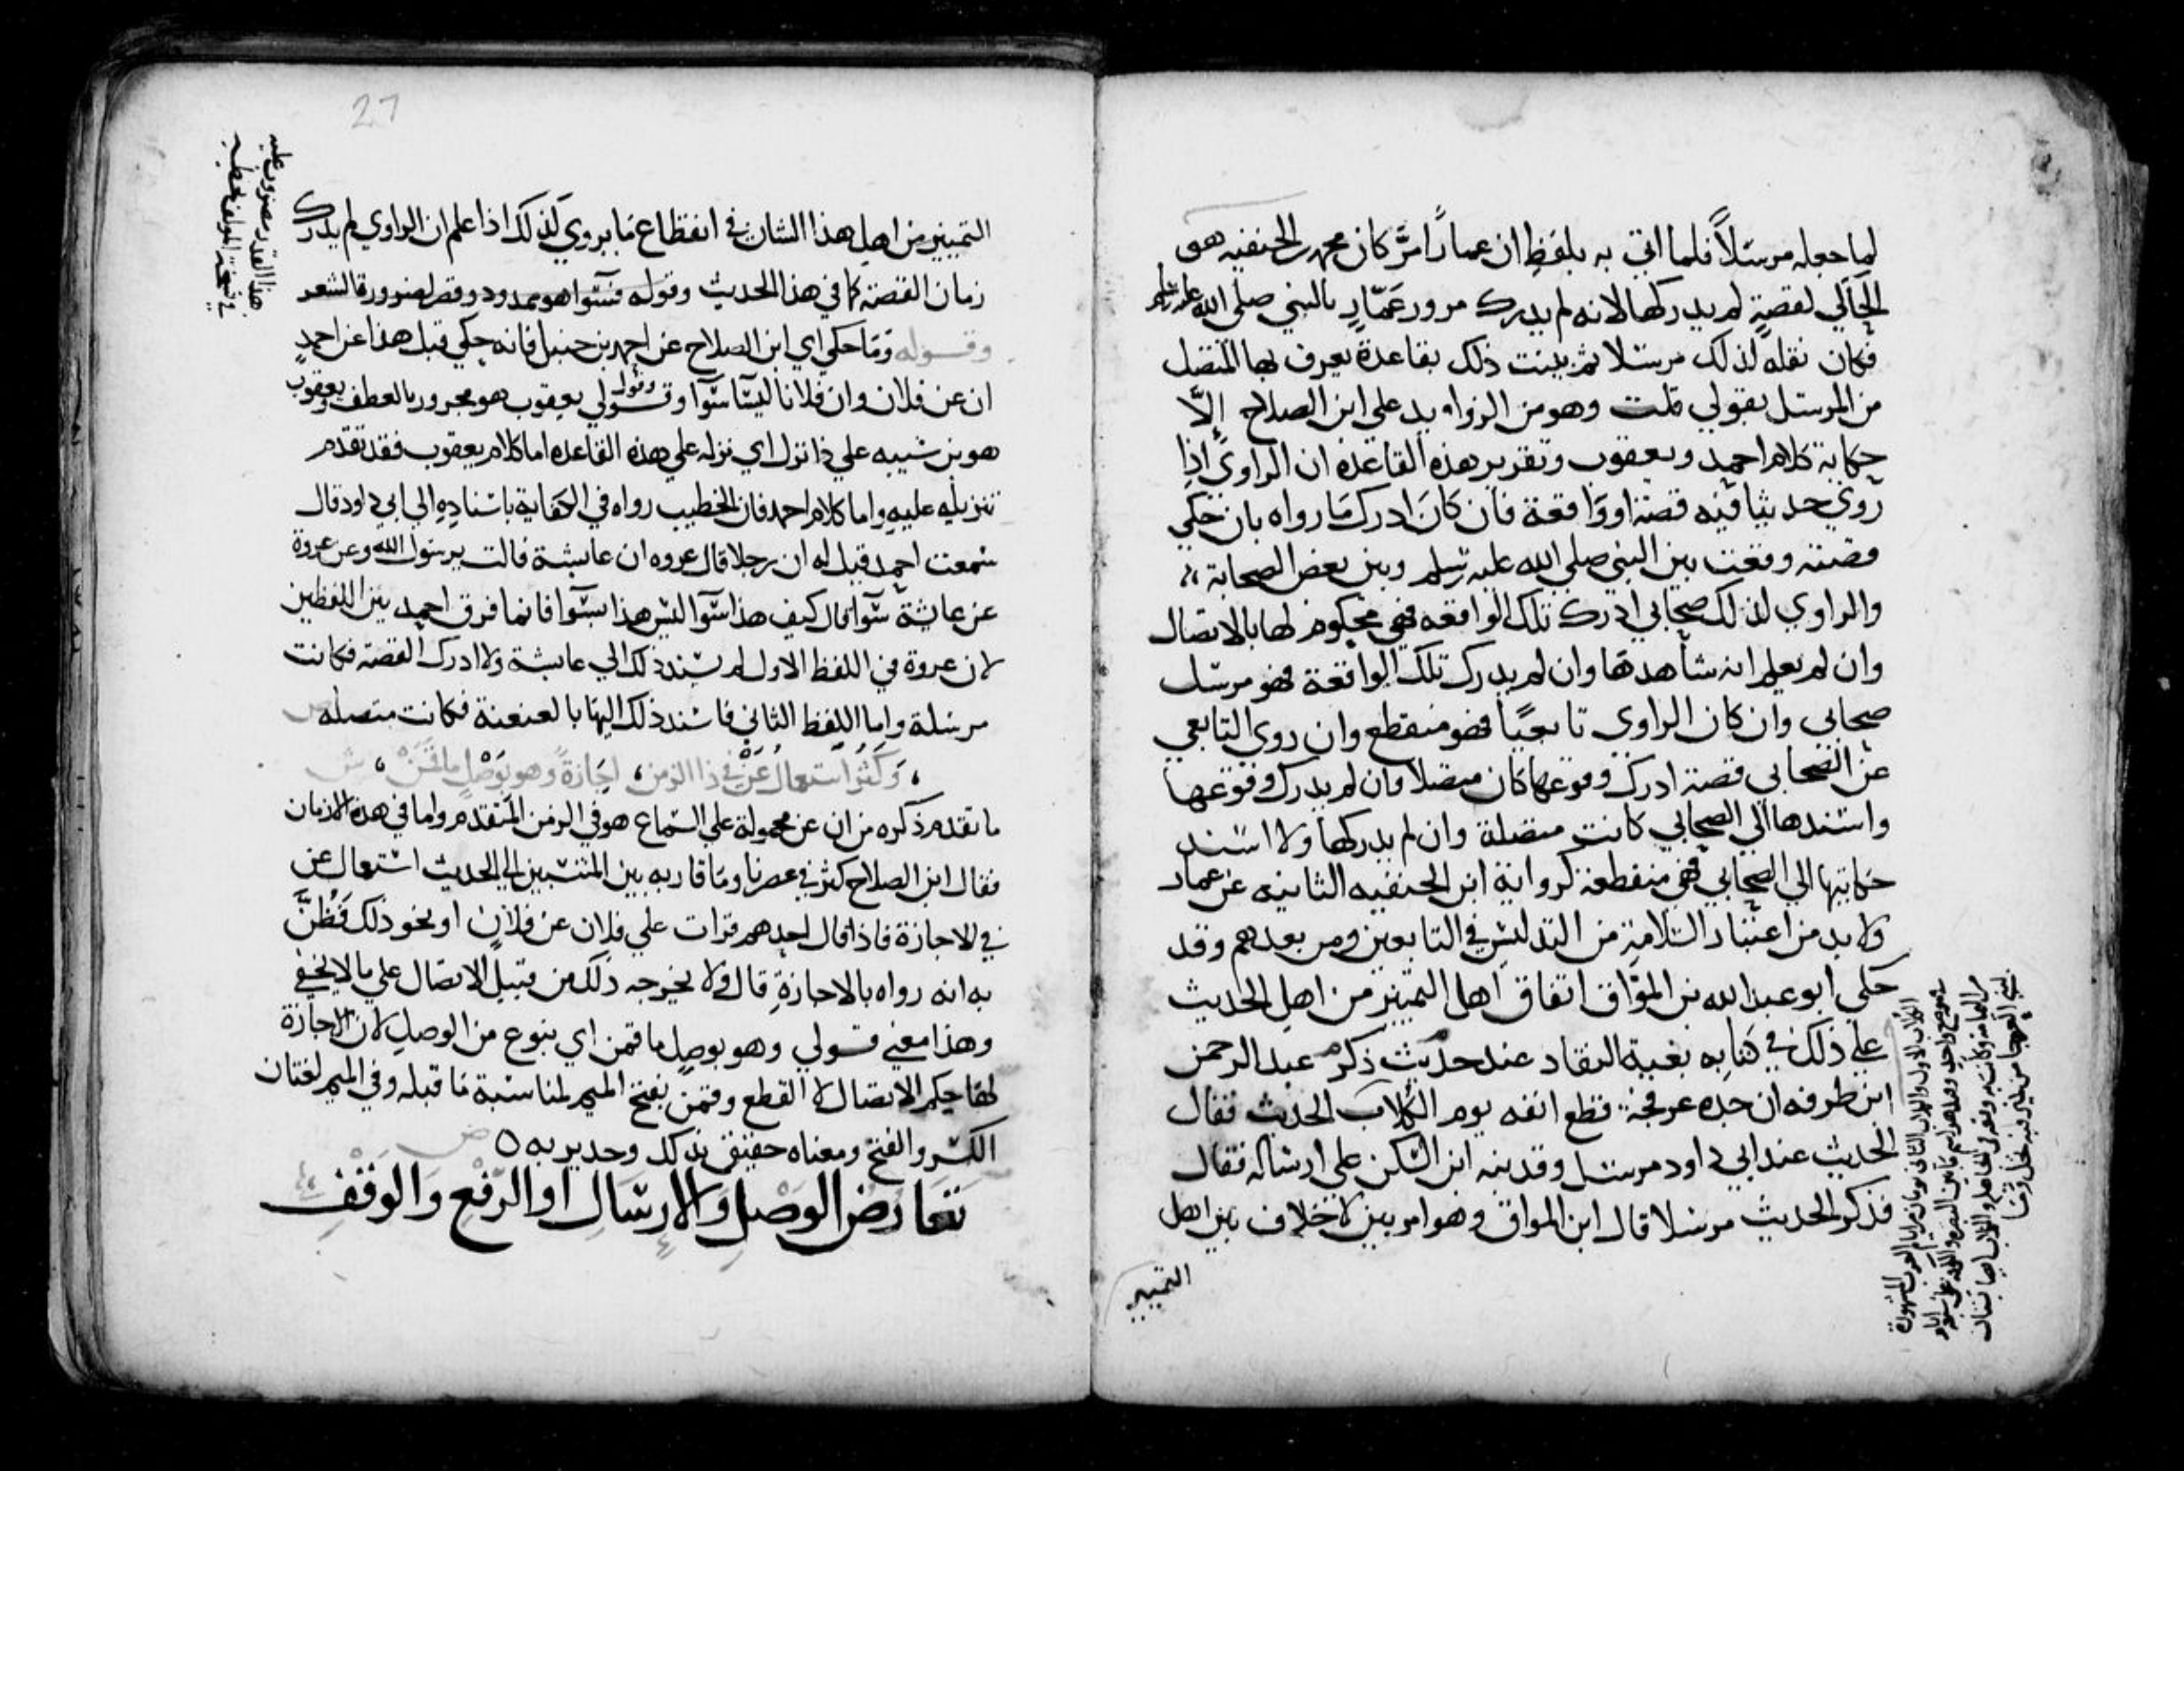 لما جعله مرسلاً فلما اتي به بلفظ ان عماراً مرَّ كان محمد بن الحنفيه هو
الحاكي لقصةٍ لم يدركها لانه لم يدرك مرور عَمّارٍ بالنبي صلي الله عليه وسلم
فكان نقله لذلك مرسلا ثم بينت ذلك بقاعدة يعرف بها المتصل
من المرسل بقولي قلت وهو من الزوايد علي ابن الصلاح إلّا
حكاية كلام احمد ويعقوب وتقرير هذه القاعدة ان الراوي اذا
روي حديثا فيه قصة او واقعة فان كان ادرك ما رواه بان حكي
قصة وقعت بين النبي صلي الله عليه وسلم وبين بعض الصحابة
والراوي لذلك صحابي ادرك تلك الواقعه فهي محكوم لها بالاتصال
وان لم يعلم انه شاهدها وان لم يدرك تلك الواقعة فهو مرسل
صحابي وان كان الراوي تابعيًا فهو منقطع وان روي التابعي
عن الصحابي قصة ادرك وقوعها كان متصلا وان لم يدرك وقوعها
واسندها الي الصحابي كانت متصلة وان لم يدركها ولا اسند
حكايتها الي الصحابي فهي منقطعة كرواية ابن الحنفيه الثانيه عن عمار
ولا بد من اعتبار السلامة من التدليس في التابعين ومن بعدهم وقد
حكي ابو عبد الله بن الموّاق اتفاق اهل التمييز من اهل الحديث
علي ذلك في كتابه بغية النقاد عند حديث ذكره عبد الرحمن
ابن طرفه ان جده عرفجة قطع انفه يوم الكُلاب الحديث فقال
الحديث عند ابي داود مرسل وقد نبه ابن السكن علي ارساله فقال
فذكر الحديث مرسلا قال ابن المواق وهو امر بين لا خلاف بين اهل
التمييز
27
التمييز من اهل هذا الشان في انقطاع ما يروي كذلك اذا علم ان الراوي لم يدرك
زمان القصة كما في هذا الحديث وقوله سَوا هو ممدود وقصر لضرورة الشعر
وقوله وما حكي اي ابن الصلاح عن احمد بن حنبل فانه حكي قبل هذا عن احمد
ان عن فلان وان فلانا ليسا سوآ وقولي وقول يعقوب هو مجرور بالعطف ويعقوب
هو بن شيبه علي ذا نزل اي نزله علي هذه القاعده اما كلام يعقوب فقد تقدم
تنزيله عليه واما كلام احمد فان الخطيب رواه في الكفاية باسناده الي ابي داود قال
سمعت احمد قيل له ان رجلا قال عروه ان عايشة قالت يرسول الله وعن عروة
عن عايشة سوآ قال كيف هذا سوآ ليس هذا بسوآ فانما فرق احمد بين اللفظين
لان عروة في اللفظ الاول لم يسند ذلك الي عايشة ولا ادرك القصة فكانت
مرسلة واما اللفظ الثاني فاسند ذلك اليها بالعنعنة فكانت متصله ص
وَكَثُرَ استعمالُ عَنْ في ذا الزمن، اجازةً وهو بوَصْلٍ ما قَمَنْ، ش
ما تقدم ذكره من ان عن محمولة علي السماع هو في الزمن المتقدم واما في هذه الازمان
فقال ابن الصلاح كثر في عصرنا وما قاربه بين المنتسبين الي الحديث استعمال عن
في الاجازة فاذا قال احدهم قرات علي فلان عن فلان او نحو ذلك فظُنَّ
به انه رواه بالاجازة قال ولا يخرجه ذلك من قبيل الاتصال علي ما لا يخفي
وهذا معني قولي وهو بوصل ما قمن اي بنوع من الوصل لان الاجازة
لها حكم الاتصال لا القطع وقمن بفتح الميم لمناسبة ما قبله وفي الميم لغتان
الكسر والفتح ومعناه حقيق بذلك وجدير به ٥ ص
تَعَارُضُ الوَصْلِ والارسَالِ او الرَّفْعِ وَالوَقْفِ
هذا القدر مضروب عليه
في نسخة المولف بخطه